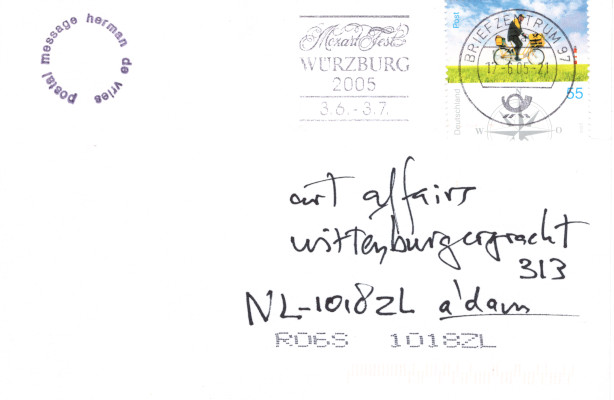 postal message herman de vries
Mozart Fest
WÜRZBURG
2005
3.6.-3.7.
Post
Deutschland
55
BRIEFZENTRUM 97
17.-6.05-21
W O
art affairs
wittenburgergracht
313
NL-1018ZL a'dam
R06S 1018ZL